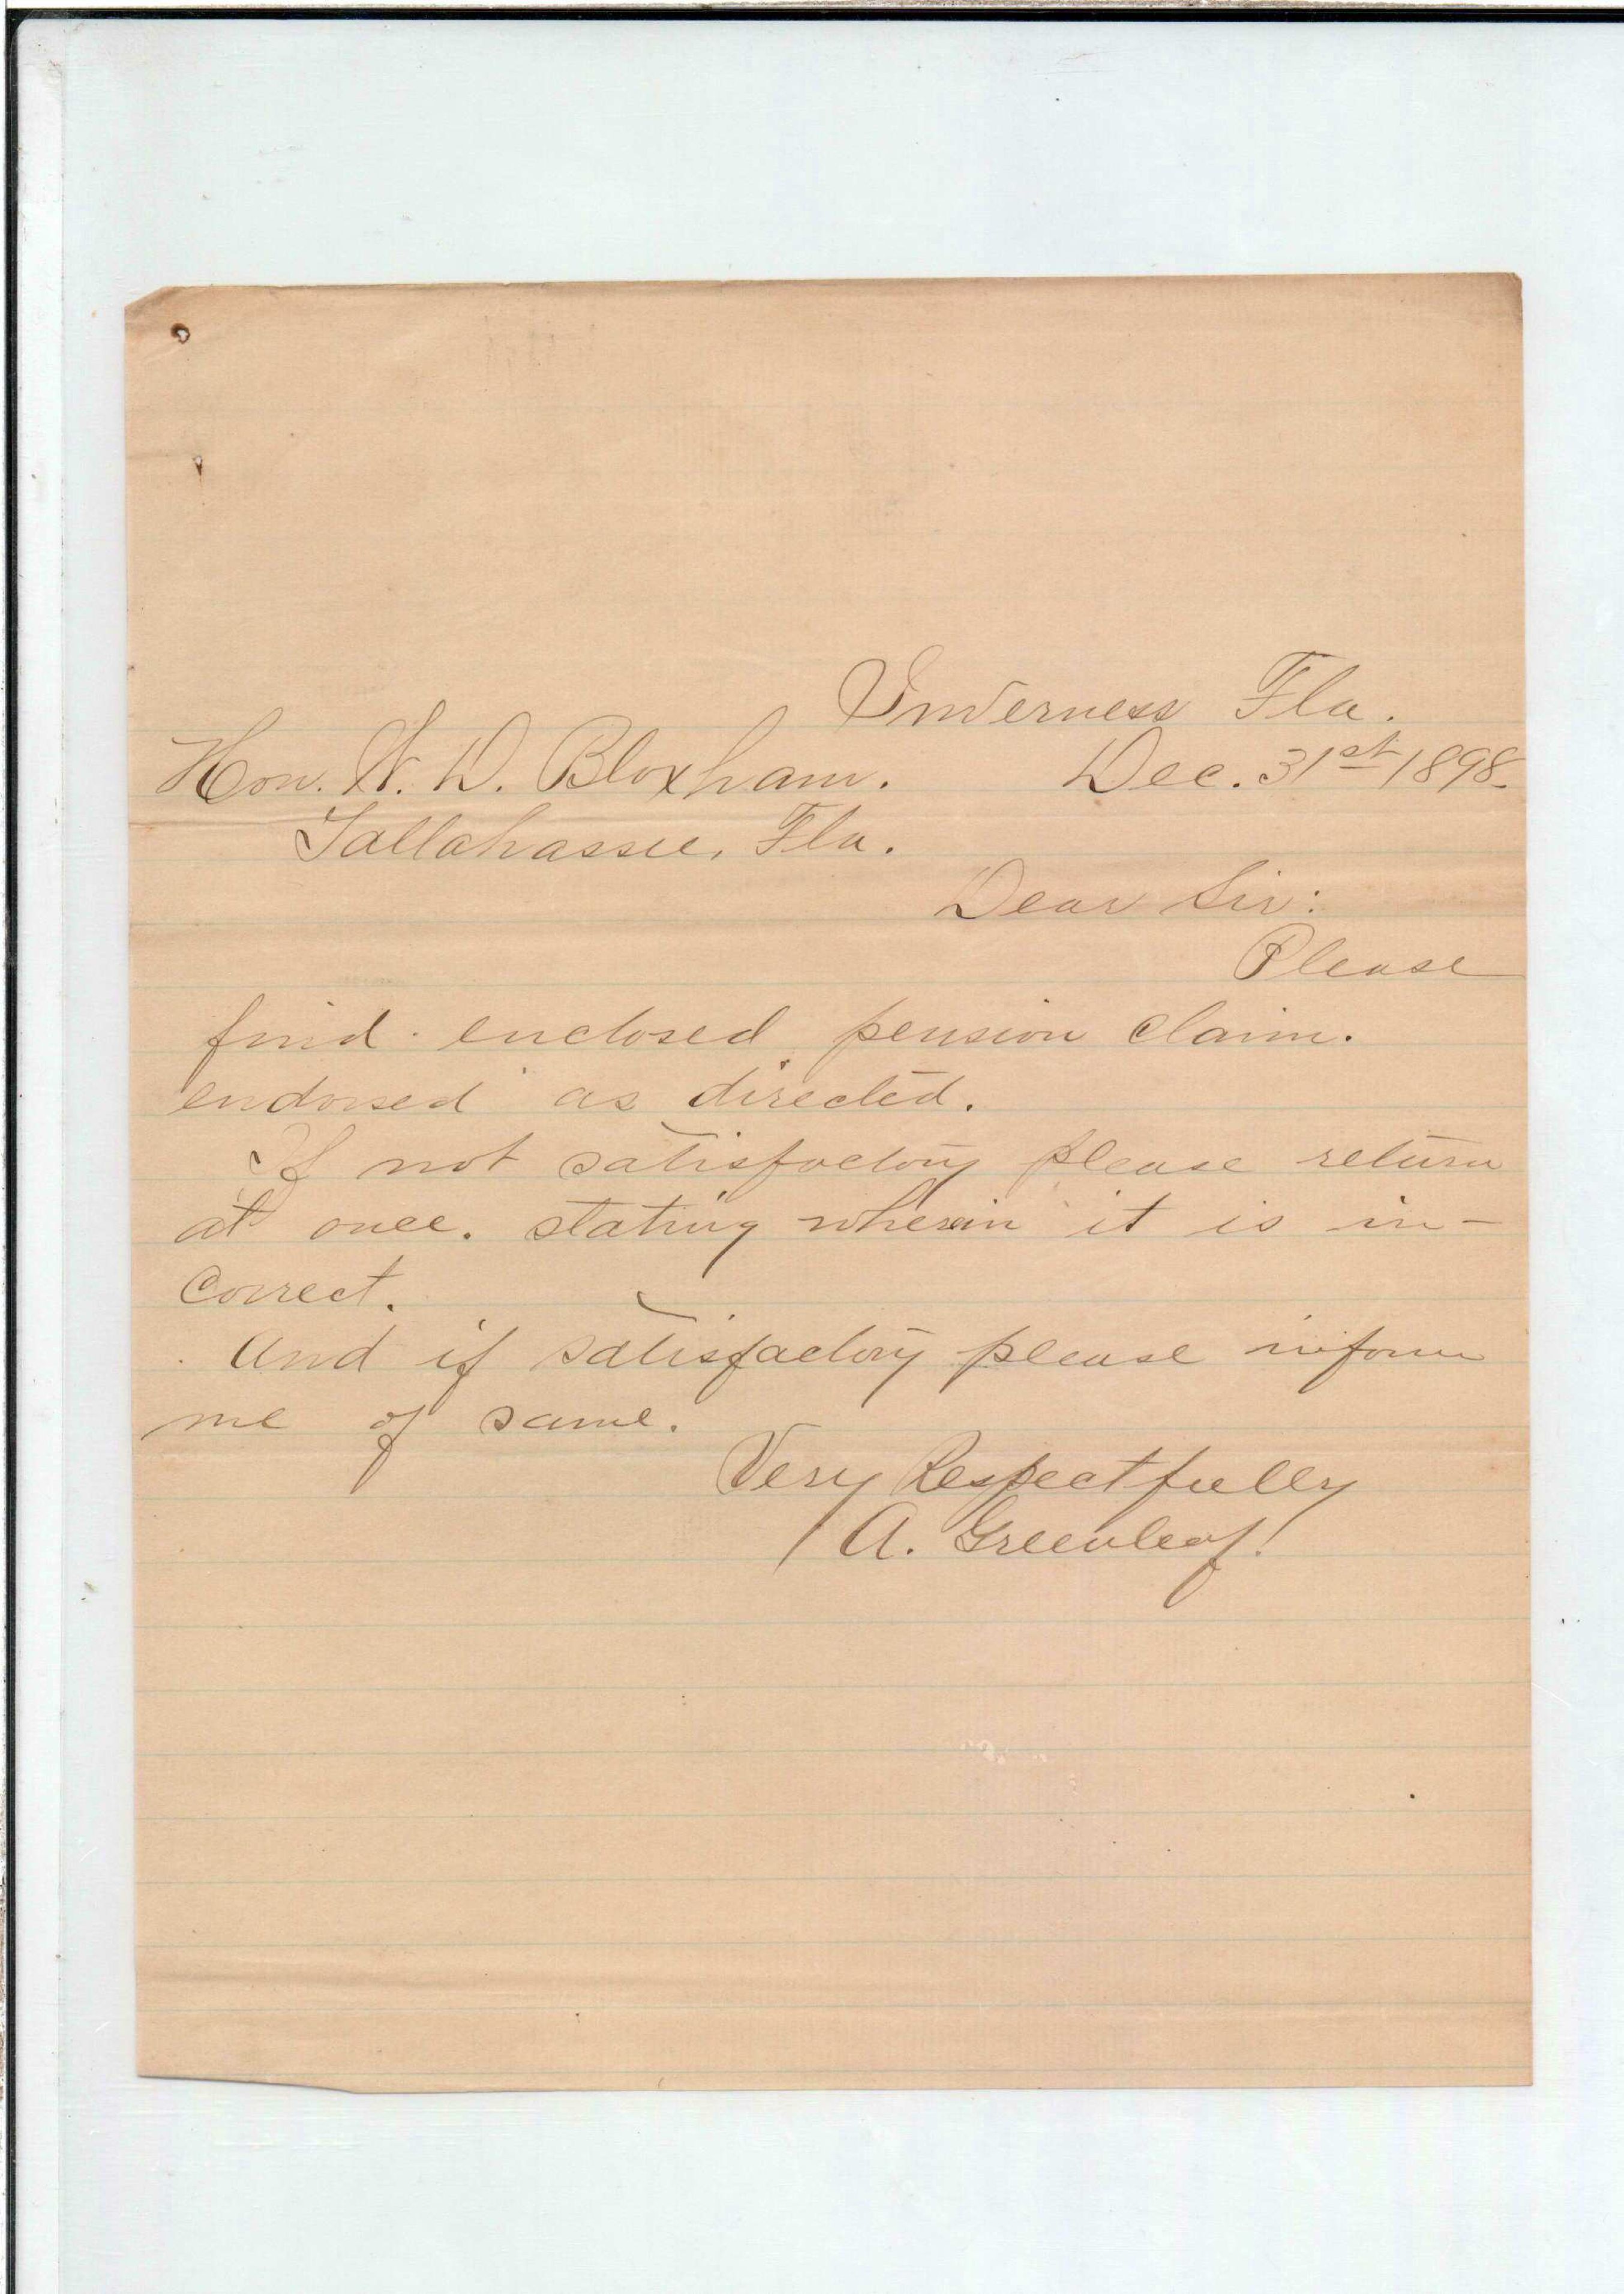 Inverness Fla.
Hon. W. D. Bloxham. Dec. 31st 1898.
Tallahassee, Fla.
Dear Sir:
Please
find enclosed pension claim.
endorsed as directed.
If not satisfactory please return
at once. stating wherein it is in-
correct.
And if satisfactory please inform
me of same.
Very Respectfully
A. Greenleaf.